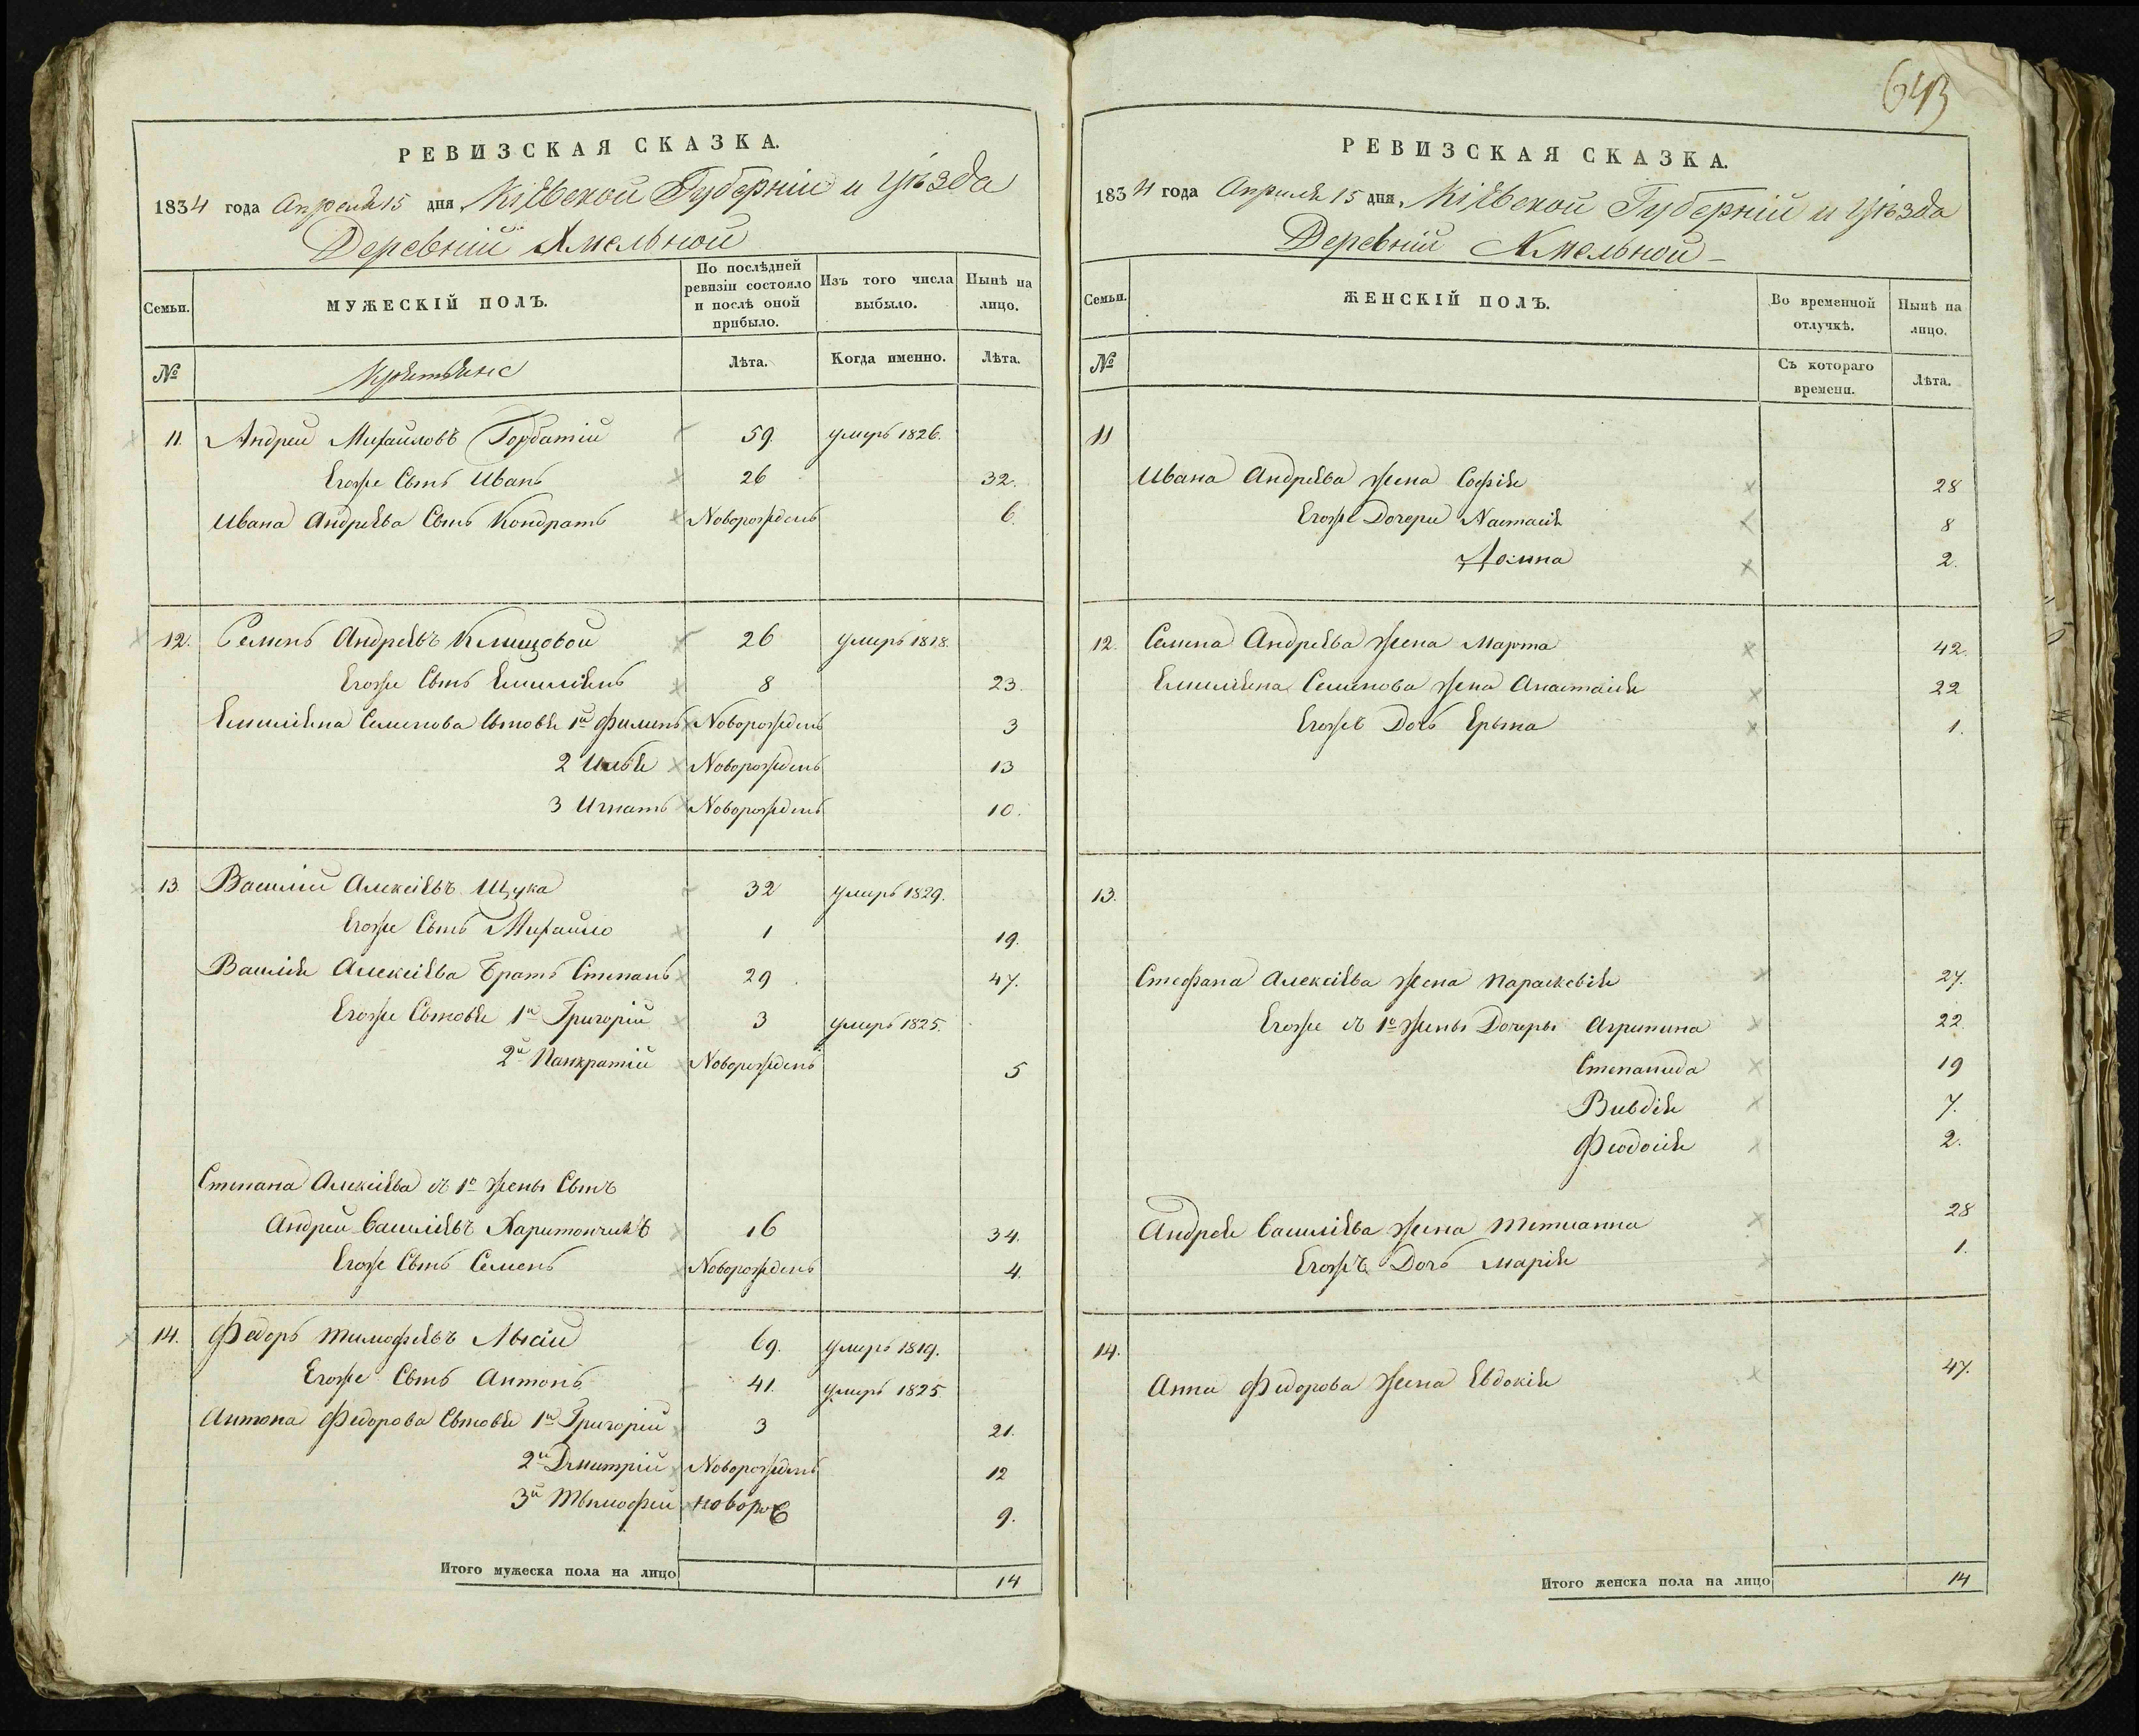 643
РЕВИЗСКАЯ СКАЗКА.
1834 года Апреля 15 дня Кіевской Губерніи и Уѣзда
Деревніи Хмельной
Семьи.
МУЖЕСКІЙ ПОЛЪ.
По послѣдней ревизіи состояло и послѣ оной прибыло.
Изъ того числа выбыло.
Нынѣ на лицо.
№
Лѣта.
Когда именно.
Лѣта.
11. Андрей Михайловъ Горбатій 59. умеръ 1826.
Егоже Сынъ Иванъ 26 32.
Ивана Андреева Сынъ Кондратъ Новорожденъ 6.
12. Семенъ Андреевъ 26 умеръ 1818.
Егоже Сынъ Емиліянъ 8 23.
Емиліяна Семенова Сыновья 1й Филипъ Новорожденъ 3
2 Илья Новорожденъ 13
3 Игнатъ Новорожденъ 10.
13. Василій Алексіевъ Щука 32 умеръ 1829.
Егоже Сынъ Михайло 1 19.
Василія Алексіева Братъ Степанъ 29 47.
Егоже Сыновья 1й Григорій 3 умеръ 1825.
2й Панкратій Новорожденъ 5
Степана Алексіева съ 1о жены Сынъ
Андрей Василіевъ Харитончикъ 16 34.
Егоже Сынъ Семенъ Новорожденъ 4.
14. Федоръ Тимофеевъ Лысій 69. умеръ 1819.
Егоже Сынъ Антонъ 41. умеръ 1825.
Антона Федорова Сыновья 1й Григорій 3 21.
2й Дмитрій Новорожденъ 12
3й Тымофей 9.
Итого мужеска пола на лицо 14
РЕВИЗСКАЯ СКАЗКА.
1834 года Апреля 15 дня Кіевской Губерніи и Уѣзда
Деревніи Хмельной
Семьи.
ЖЕНСКІЙ ПОЛЪ.
Во временной отлучкѣ.
Нынѣ на лицо.
№
Съ котораго времени.
Лѣта.
11
Ивана Андреева жена Софія 28
Егоже Дочери Настасія 8
Домна 2.
12. Семена Андреева жена Марта 42.
Емиліяна Семенова жена Анастасія 22
Егожъ Дочь Ерына 1.
13.
Стефана Алексіева жена Параскевія 27.
Егоже съ 1о жены Дочеры Агрипина 22
Степанида 19
Вивдія 7.
Феодосія 2.
Андрея Василіева жена Тетианна 28
Егожъ Дочь Марія 1.
14.
Федорова жена Евдокія 47.
Итого женска пола на лицо 14